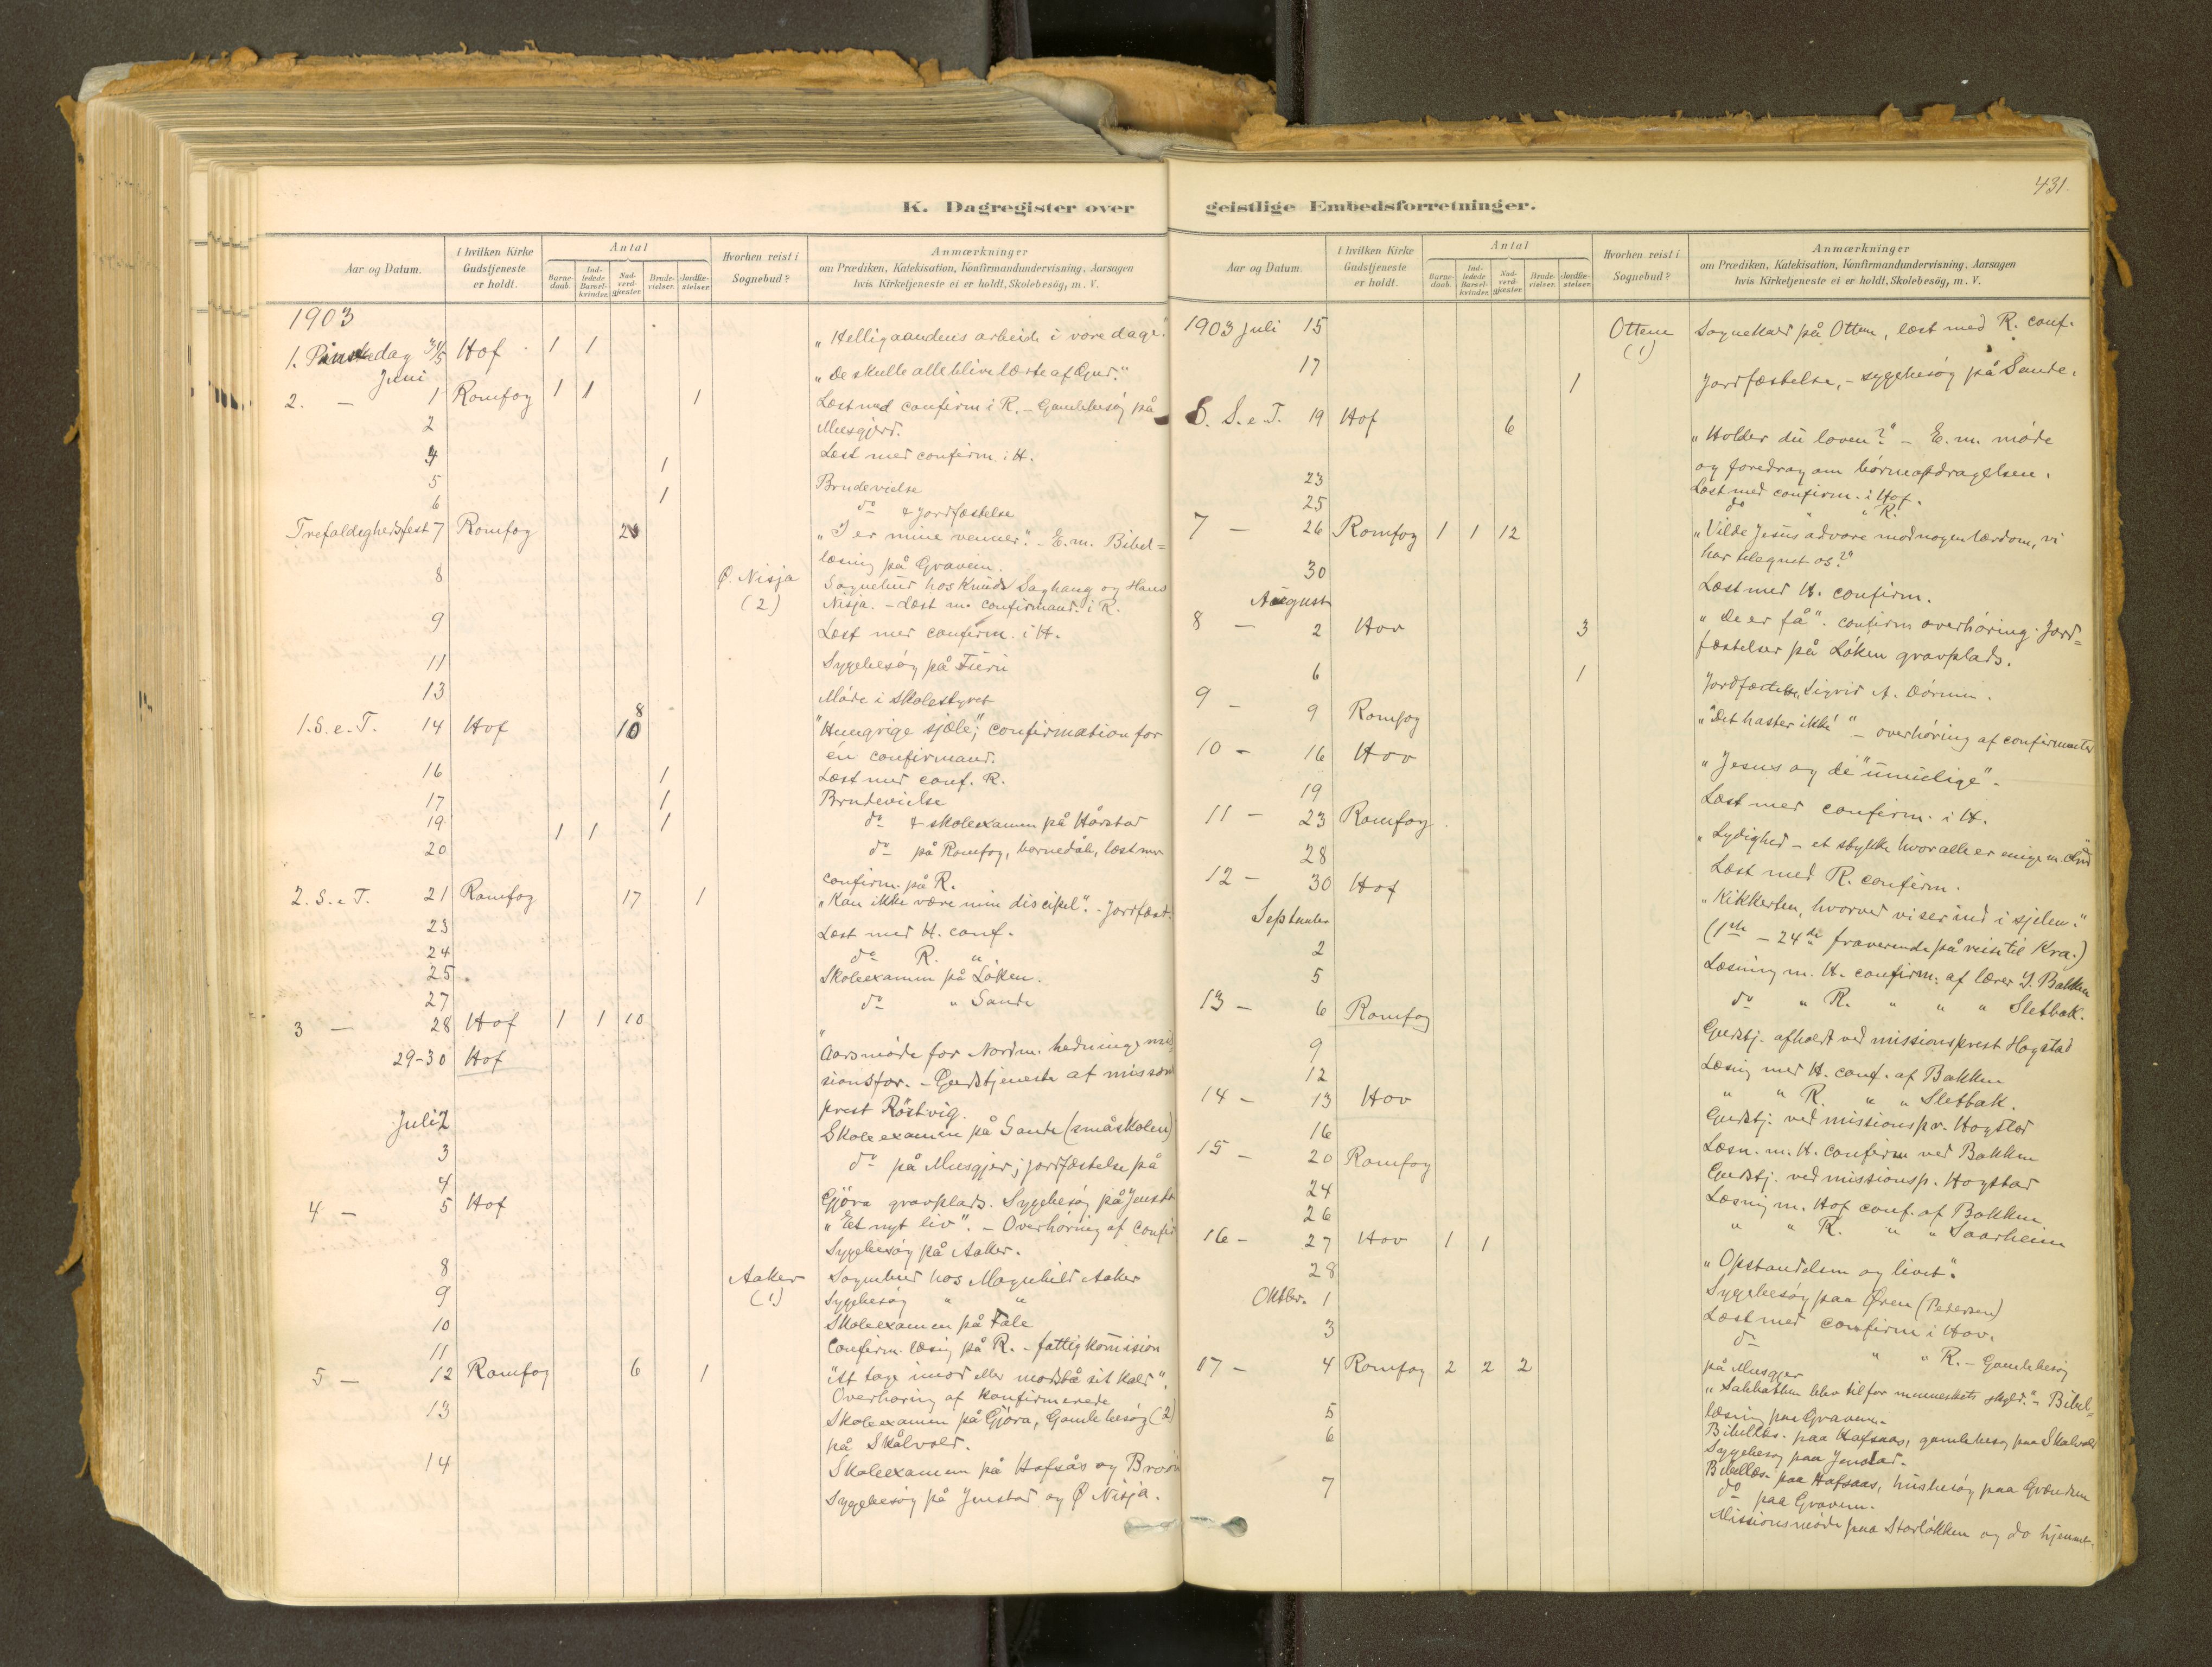 K. Dagregister over
Aar og Datum.
I hvilken Kirke Gudstjeneste er holdt.
Antal
Barne-daab.
Ind-ledede Barsel-kvinder.
Nad-verd-gjæster.
Brude-vielser.
Jordfæ-stelser.
Hvorhen reist i Sognebud?
Anmærkninger
om Prædiken, Katekisation, Konfirmandundervisning, Aarsagen
hvis Kirketjeneste ei er holdt, Skolebesög, m. V.
1903
1. Pinsedag 31/5 Hof 1 1 „Helligaandens arbeide i vore dage."
Juni „De skulle alle blive lærte af Gud."
2. — 1 Romfog 1 1 1 Læst med confirm i R. - Gamlebesøg på
2 Musgjerd.
4 1 Læst med confirm. i H.
5 1 Brudevielse
6 do & Jordfæstelse
Trefoldighedsfest 7 Romfog „I er mine venner". - E.m. Bibel=
læsning på Gravem.
8 Ø. Nisja Sognebud hos Knud Saghaug og Hans
(2) Nisja. - Læst m. confirmand. i R.
9 Læst med confirm. i H.
11 Sygebesøg på Furu
13 Møde i skolestyret
1. S. e. T. 14 Hof 8 10 "Hungrige sjæle", confirmation for
én confirmand.
16 1 Læst med conf. R.
17 1 Brudevielse
19 1 1 1 do & skoleexamen på Hårstad
20 do på Romfog, barnedåb, læst med
confirm. på R.
2. S. e. T. 21 Romfog 17 1 „Kan ikke være min discipel". - Jordfæst.
23 Læst med H. conf.
24 do R. "
25 Skoleexamen på Løken.
27 do " Sande
3 — 28 Hof 1 1 10 "
29-30 Hof Aarsmøde for Nordm. hedningemis=
sionsfor. - Gudstjeneste af missions
prest Röstvig.
Juli 2 Skoleexamen på Sande (småskolen)
3 do på Musgjer; jordfæstelse på
4 Gjöra gravplads. Sygebesøg på Jenstad
4 — 5 Hof „Et nyt liv". - Overhøring af confir
Sygebesøg på Aaker.
8 Aaker Sognebud hos Magnhild Aaker
9 (1) Sygebesøg " "
10 Skoleexamen på Fale
11 Confirm. læsng på R. - fattigkomision
5 — 12 Romfog 6 1 „At tage imod eller modstå sit kald".
Overhøring af konfirmerede
13 Skoleexamen på Gjöra, Gamlebesøg (2)
på Skålvold.
14 Skoleexamen på Hafsås og
Sygebesøg på Jenstad og Ø Nisja.
geistlige Embedsforretninger.
431.
Aar og Datum.
I hvilken Kirke Gudstjeneste er holdt.
Antal
Barne-daab.
Ind-ledede Barsel-kvinder.
Nad-verd-gjæster.
Brude-vielser.
Jordfæ-stelser.
Hvorhen reist i Sognebud?
Anmærkninger
om Prædiken, Katekisation, Konfirmandundervisning, Aarsagen
hvis Kirketjeneste ei er holdt, Skolebesög, m. V.
1903 Juli 15 Ottem Sognebud på Ottem, læst med R. conf.
(1)
17 1 Jordfæstelse, - sygebesøg på Sande.
6. S. e. T. 19 Hof 6 „Holder du loven?" - E. m. møde
og foredrag om børneopdragelsen.
23 Læst med confirm. i Hof.
25 do " R.
7 — 26 Romfog 1 1 12 „Vilde Jesus advare mod nogen lærdom, vi
har tilegnet os?"
30 Læst med H. confirm.
August
8 — 2 Hov 3 „De er få". confirm overhøring. Jord=
fæstelser på Løken gravplads.
6 1 Jordfæstelse, Sigrid A.
9 — 9 Romfog „Det haster ikke" - overhøring af confirmerte
10 — 16 Hov „Jesus og de umulige".
19 Læst med confirm. i H.
11 — 23 Romfog „Lydighed - et stykke hvor alle er enige m. Gud"
28 Læst med R. confirm.
12 — 30 Hof „Kikkerten, hvorved vi ser ind i sjelen."
September (1ste - 24de fraværende på reise til Kra.)
2 Læsning m. H. confirm. af lærer I. Bakken
5 do " R. " " " Sletbak.
13 — 6 Romfog Gudstj. afholdt ved missionsprest Hogstad
9 Læsng med H. conf. af Bakken
12 " " R. " " Sletbak.
14 — 13 Hov Gudstj. ved missionspr. Hogstad
16 Læsn. m. H. confirm ved Bakken
15 — 20 Romfog Gudstj. ved missionsp. Hogstad
24 Læsning m. Hof conf. af Bakken
26 " " R. " " Saarheim
16 — 27 Hov 1 1 „Opstandelsen og livet".
28 Sygebesøg paa Øren (Pedersen)
Oktbr. 1 Læst med confirm i Hov.
3 do " " R. - Gamlebesøg
på Musgjer
17 — 4 Romfog 2 2 2 „Sabbathen blev til for menneskets skyld." - Bibel=
læsning paa Gravem.
5 Bibellæs. paa Hafsaas, gamlebesøg paa Skalvold
6 Sygebesøg paa Jenstad.
Bibellæs. paa Hafsaas, husbesøg paa
7 do paa Gravem.
Missionsmøde paa Storløkken og do hjemmet.